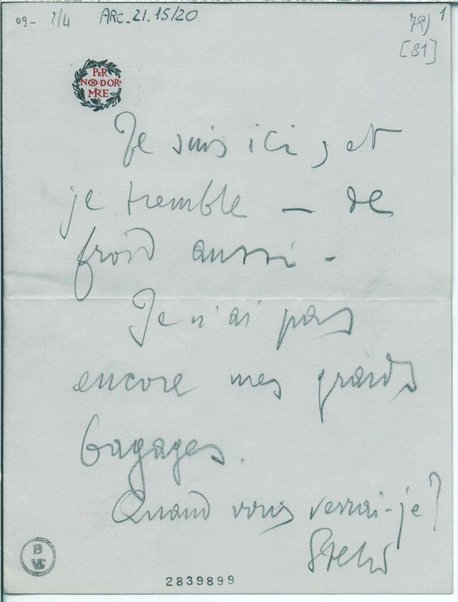 09- 2/4 ARC. 21. 15/20 1
[81]
PER
NON DOR
MIRE
Je suis ici, et
je tremble — de
froid aussi -
Je n'ai pas
encore mes grands
bagages.
Quand vous verrai-je?
B
VE
2839899